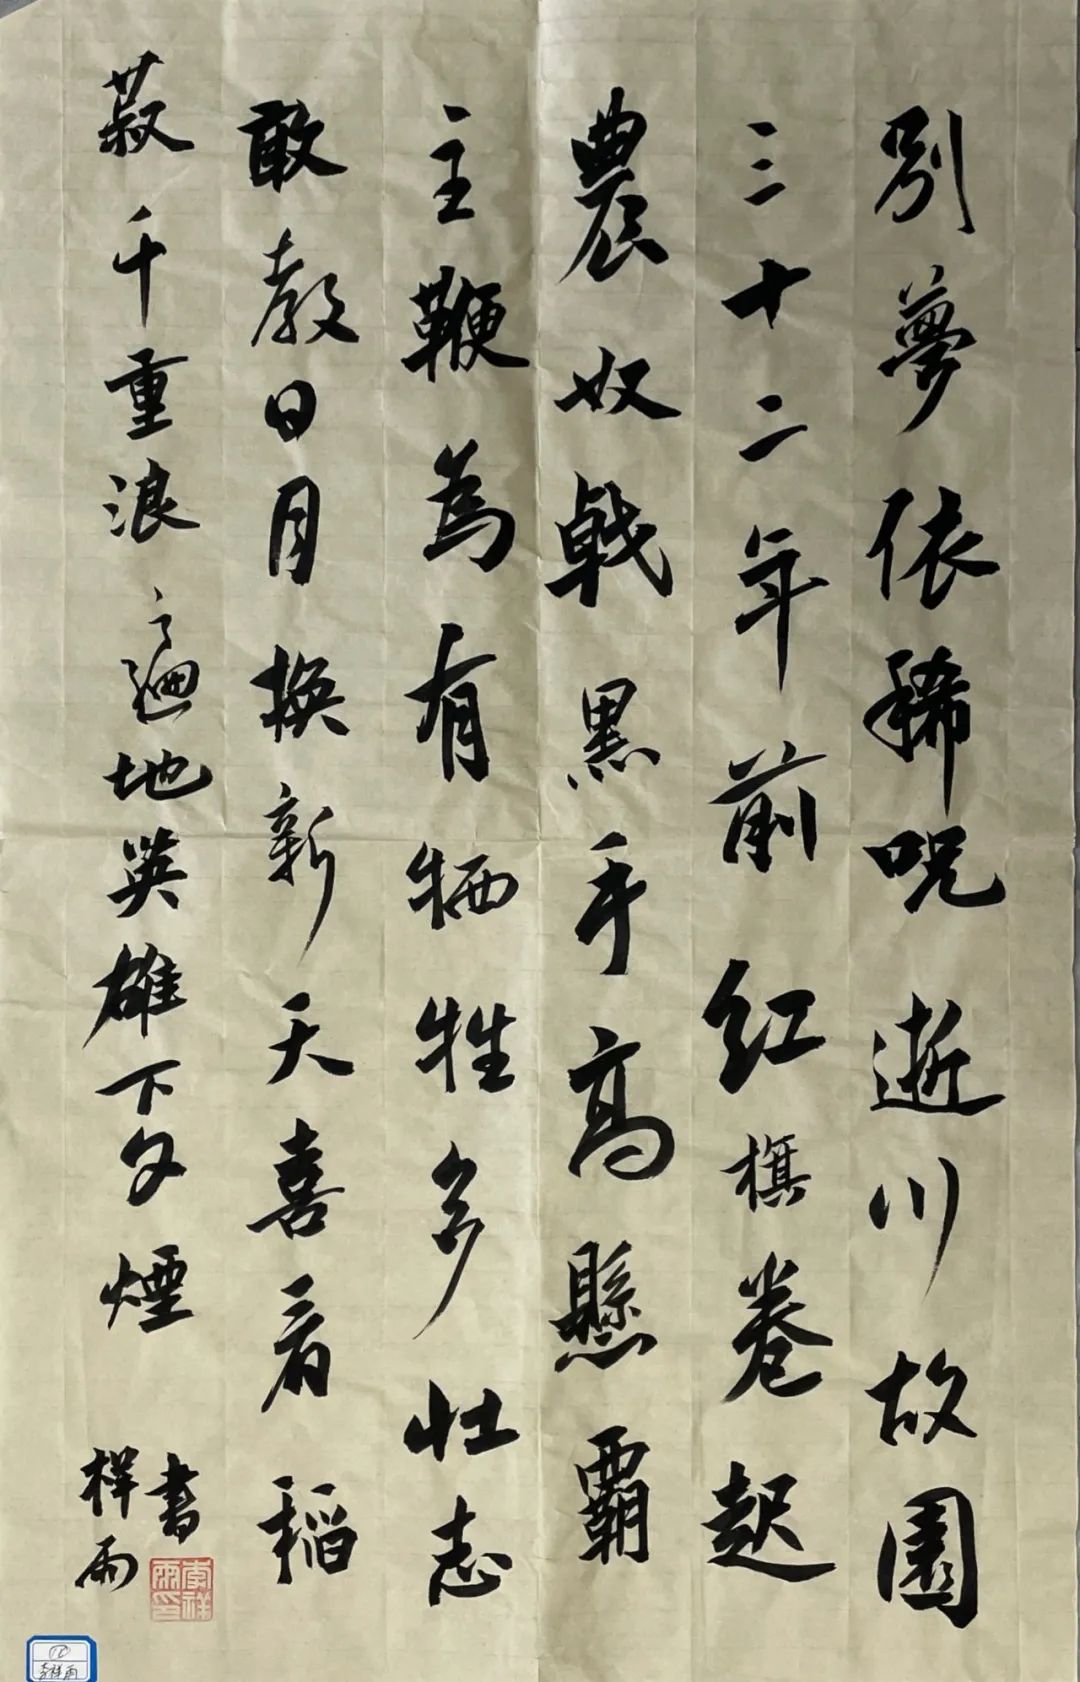 別夢依稀咒逝川故園
三十二年前紅旗卷起
農奴戟黑手高懸霸
主鞭為有犧牲多壮志
敢教日月換新天喜看稻
菽千重浪遍地英雄下夕煙
祥雨書
李祥雨印
李祥雨